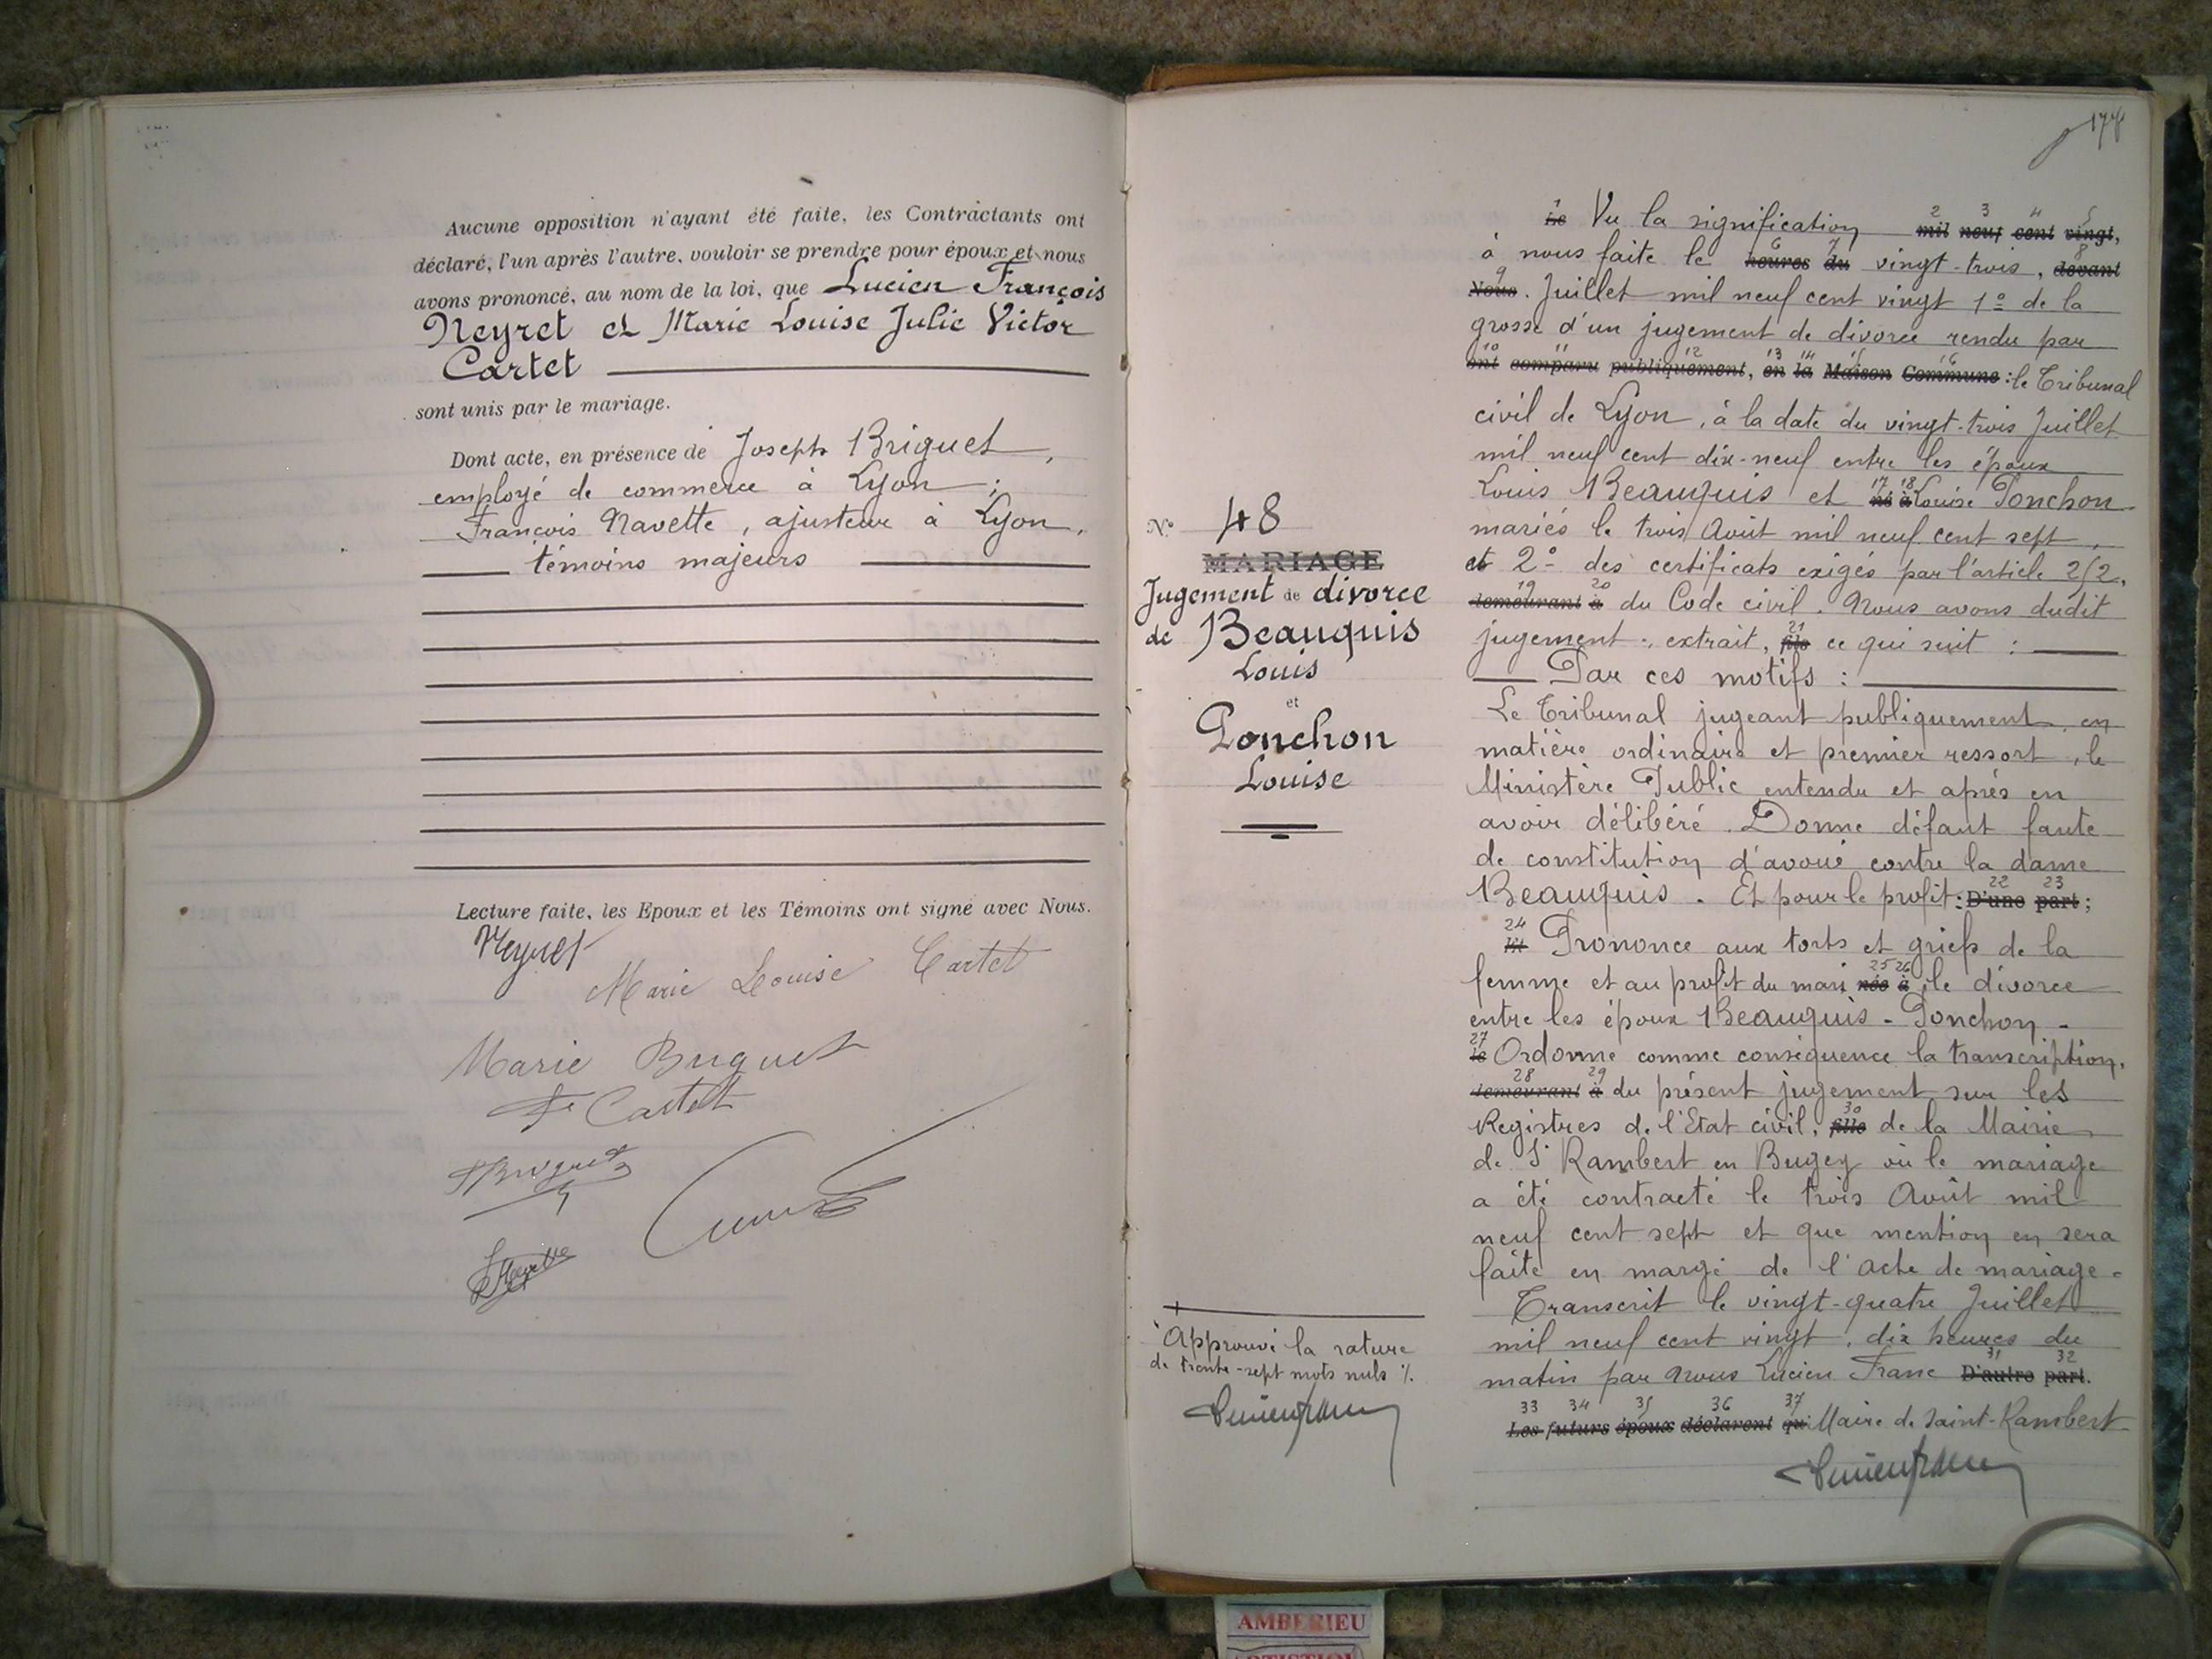 Aucune opposition n'ayant été faite, les Contractants ont
déclaré, l'un après l'autre, vouloir se prendre pour époux et nous
avons prononcé, au nom de la loi, que Lucien François
Neyret et Marie Louise Julie Victor
Cartet
sont unis par le mariage.
Dont acte, en présence de Joseph Briguet,
employé de commerce à Lyon ;
François Navette, ajusteur à Lyon,
témoins majeurs
Lecture faite, les Epoux et les Témoins ont signé avec Nous.
Neyret
Marie Louise Cartet
Marie Briguet
Fe Cartet
JBriguet
178
N° 48
MARIAGE
Jugement de divorce
de Beauquis
Louis
et
Ponchon
Louise
Approuvé la rature
de trente-sept mots nuls %.
Lucien Franc
1 2 3 4 5
Le Vu la signification mil neuf cent vingt,
6 7 8
à nous faite le heures du vingt-trois, devant
9
Nous. Juillet mil neuf cent vingt 1° de la
grosse d'un jugement de divorce rendu par
10 11 12 13 14 15 16
ont comparu publiquement, en la Maison Commune : le Tribunal
civil de Lyon, à la date du vingt-trois Juillet
mil neuf cent dix-neuf entre les époux
17 18
Louis Beauquis et né à Louise Ponchon
mariés le trois Août mil neuf cent sept,
et 2° des certificats exigés par l'article 252,
19 20
demeurant à du Code civil. Nous avons dudit
21
jugement, extrait, fils ce qui suit :
Par ces motifs :
Le Tribunal jugeant publiquement, en
matière ordinaire et premier ressort, le
Ministère Public entendu et après en
avoir délibéré. Donne défaut faute
de constitution d'avoué contre la dame
22 23
Beauquis. Et pour le profit : D'une part ;
24
Et Prononce aux torts et griefs de la
25 26
femme et au profit du mari née à, le divorce
entre les époux Beauquis-Ponchon.
27
le Ordonne comme conséquence la transcription,
28 29
demeurant à du présent jugement sur les
30
Registres de l'Etat civil, fille de la Mairie
de St Rambert en Bugey où le mariage
a été contracté le trois Août mil
neuf cent sept et que mention en sera
faite en marge de l'acte de mariage.
Transcrit le vingt-quatre Juillet
mil neuf cent vingt, dix heures du
31 32
matin par Nous Lucien Franc D'autre part.
33 34 35 36 37
Les futurs époux déclarent qu Maire de Saint-Rambert
Lucien Franc
AMBERIEU